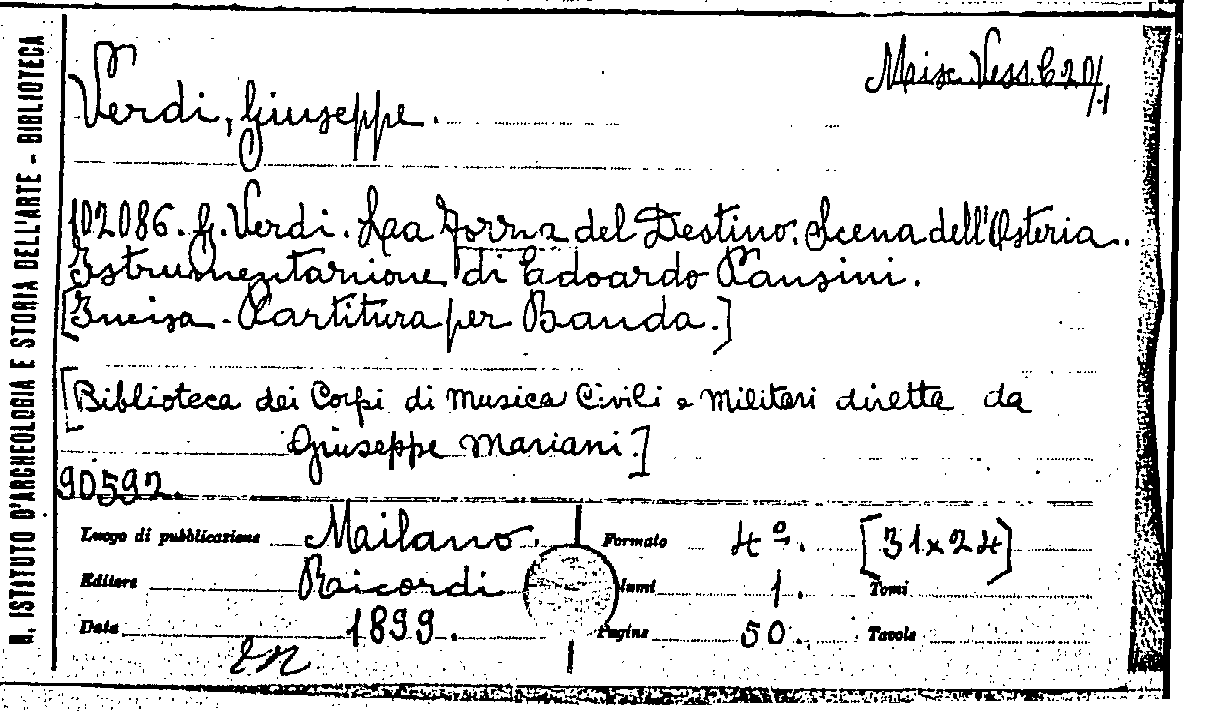 R. ISTITUTO D'ARCHEOLOGIA E STORIA DELL'ARTE - BIBLIOTECA
Misc. Vess. C 20/1
Verdi, Giuseppe.
102086. G. Verdi. La Forza del Destino. Scena dell'Osteria.
Istrumentazione di Edoardo Pansini.
[Incisa. Partitura per Banda.]
[Biblioteca dei Corpi di musica Civili e militari diretta da
Giuseppe Mariani.]
90592.
Luogo di pubblicazione Milano. Formato 4º. [31x24]
Editore Ricordi lumi 1. Tomi
Data 1899. Pagine 50. Tavole